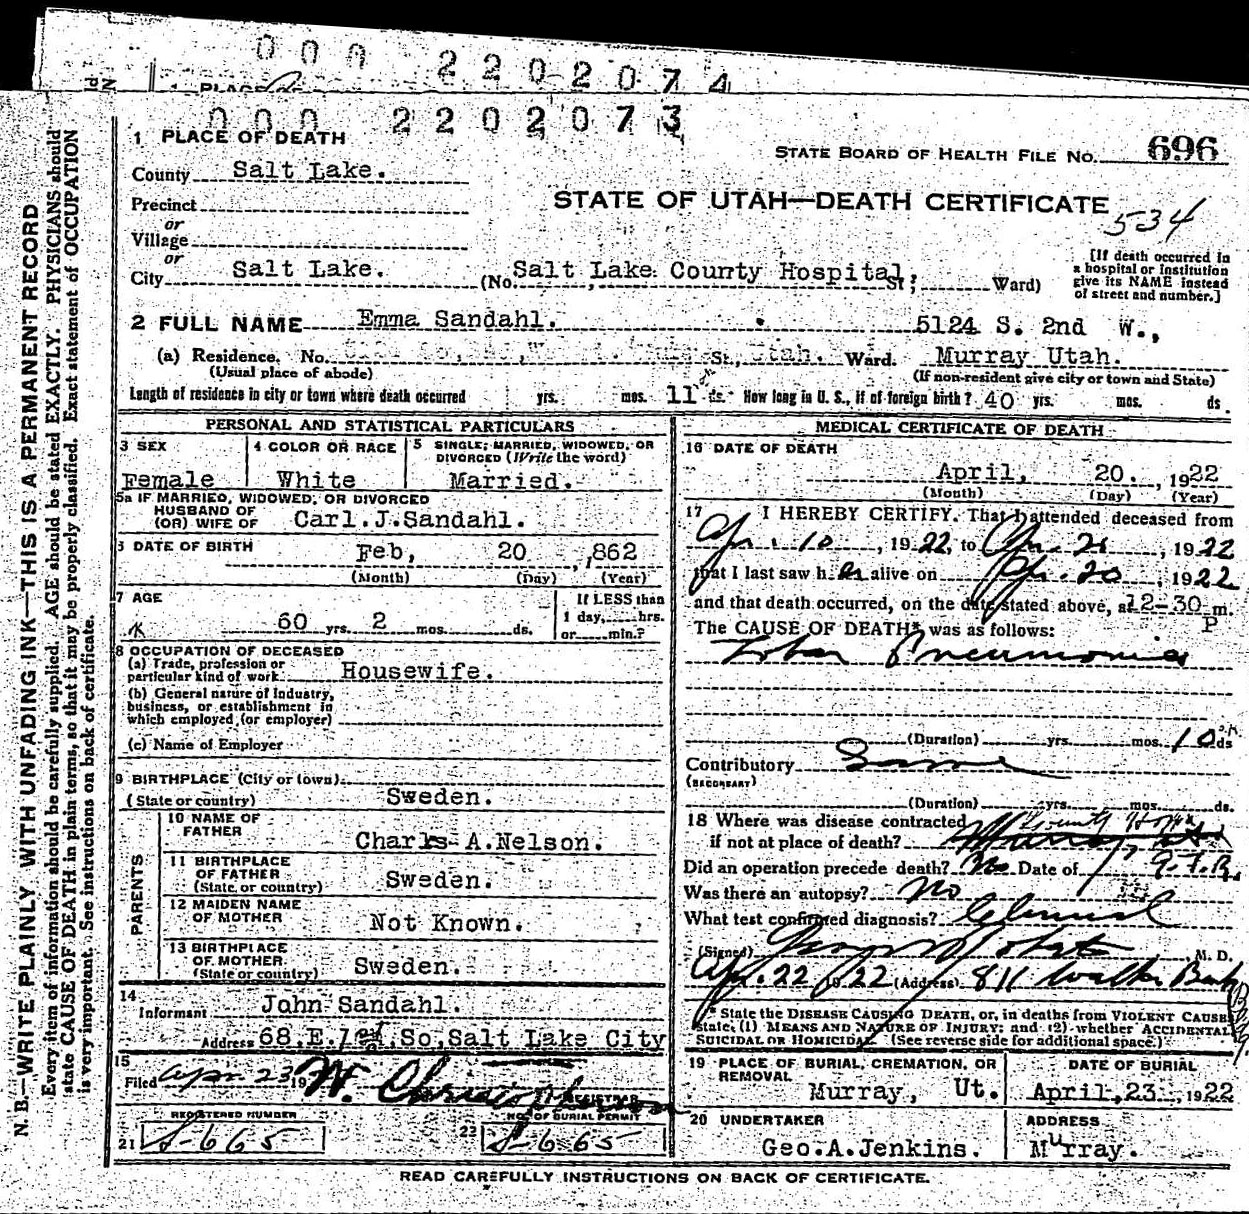 000 2202074
1 PLACE
000 2202073
1 PLACE OF DEATH
STATE BOARD OF HEALTH FILE No. 696
County Salt Lake.
STATE OF UTAH—DEATH CERTIFICATE
534
Precinct
or
Village
or
City Salt Lake. (No. Salt Lake County Hospital, St; Ward)
[If death occurred in
a hospital or institution
give its NAME instead
of street and number.]
2 FULL NAME Emma Sandahl. 5124 S. 2nd W.,
(a) Residence. No. St., Utah. Ward. Murray Utah.
(Usual place of abode) (If non-resident give city or town and State)
Length of residence in city or town where death occurred yrs. mos. 11 ds. How long in U. S., if of foreign birth? 40 yrs. mos. ds.
PERSONAL AND STATISTICAL PARTICULARS
3 SEX 4 COLOR OR RACE 5 SINGLE, MARRIED, WIDOWED, OR
DIVORCED (Write the word)
Female White Married.
5a IF MARRIED, WIDOWED, OR DIVORCED
HUSBAND OF
(OR) WIFE OF Carl.J.Sandahl.
6 DATE OF BIRTH Feb, 20 ,862
(Month) (Day) (Year)
7 AGE If LESS than
1 day, hrs.
60 yrs. 2 mos. ds. or min.?
8 OCCUPATION OF DECEASED
(a) Trade, profession or
particular kind of work Housewife.
(b) General nature of industry,
business, or establishment in
which employed (or employer)
(c) Name of Employer
9 BIRTHPLACE (City or town)
(State or country) Sweden.
PARENTS
10 NAME OF
FATHER Charls A.Nelson.
11 BIRTHPLACE
OF FATHER
(State or country) Sweden.
12 MAIDEN NAME
OF MOTHER Not Known.
13 BIRTHPLACE
OF MOTHER
(State or country) Sweden.
14
Informant John Sandahl.
Address 68.E.1st.So,Salt Lake City
15
Filed Apr 23 19 W. Christopherson
REGISTRAR
REGISTERED NUMBER NO. OF BURIAL PERMIT
21 S-665 22 S-665
MEDICAL CERTIFICATE OF DEATH
16 DATE OF DEATH
April, 20. , 1922
(Month) (Day) (Year)
17 I HEREBY CERTIFY. That I attended deceased from
Apr. 10 , 1922, to Apr. 20 , 1922
that I last saw her alive on Apr. 20 , 1922
and that death occurred, on the date stated above, at 12-30 m.
P
The CAUSE OF DEATH* was as follows:
Lobar Pneumonia
(Duration) yrs. mos. 10 ds
Contributory Same
(SECONDARY)
(Duration) yrs. mos. ds.
18 Where was disease contracted County Hosp.
if not at place of death? Murray, Ut.
G.T.R.
Did an operation precede death? No Date of
Was there an autopsy? No
What test confirmed diagnosis? Clinical
(Signed) M. D.
Apr. 22 1922 (Address) 811 Walker Bank
Bldg.
* State the DISEASE CAUSING DEATH, or, in deaths from VIOLENT CAUSES
state, (1) MEANS AND NATURE OF INJURY; and (2) whether ACCIDENTAL,
SUICIDAL OR HOMICIDAL. (See reverse side for additional space.)
19 PLACE OF BURIAL, CREMATION, OR
REMOVAL DATE OF BURIAL
Murray, Ut. April,23 ,1922
20 UNDERTAKER ADDRESS
Geo.A.Jenkins. Murray.
READ CAREFULLY INSTRUCTIONS ON BACK OF CERTIFICATE.
N. B.—WRITE PLAINLY WITH UNFADING INK—THIS IS A PERMANENT RECORD
Every item of information should be carefully supplied. AGE should be stated EXACTLY. PHYSICIANS should
state CAUSE OF DEATH in plain terms, so that it may be properly classified. Exact statement of OCCUPATION
is very important. See instructions on back of certificate.